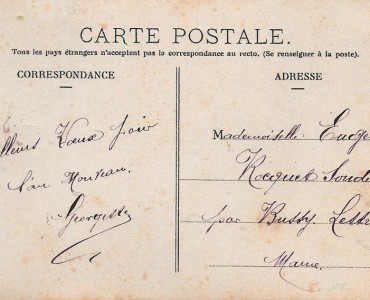 CARTE POSTALE.
Tous les pays étrangers n'acceptent pas la correspondance au recto. (Se renseigner à la poste).
CORRESPONDANCE
lleurs Vœux pour
l'an Nouveau.
Georgette
ADRESSE
Mademoiselle Euge
Rocquet Soude
par Bussy Lettre
Marne.